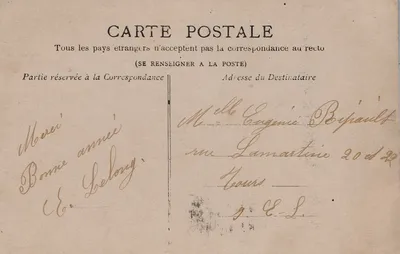 CARTE POSTALE
Tous les pays étrangers n'acceptent pas la correspondance au recto
(SE RENSEIGNER A LA POSTE)
Partie réservée à la Correspondance
Adresse du Destinataire
Merci
Bonne année
E. Lelong.
Mlle Eugénie
rue Lamartine 20 et 22
Tours
I. et L.